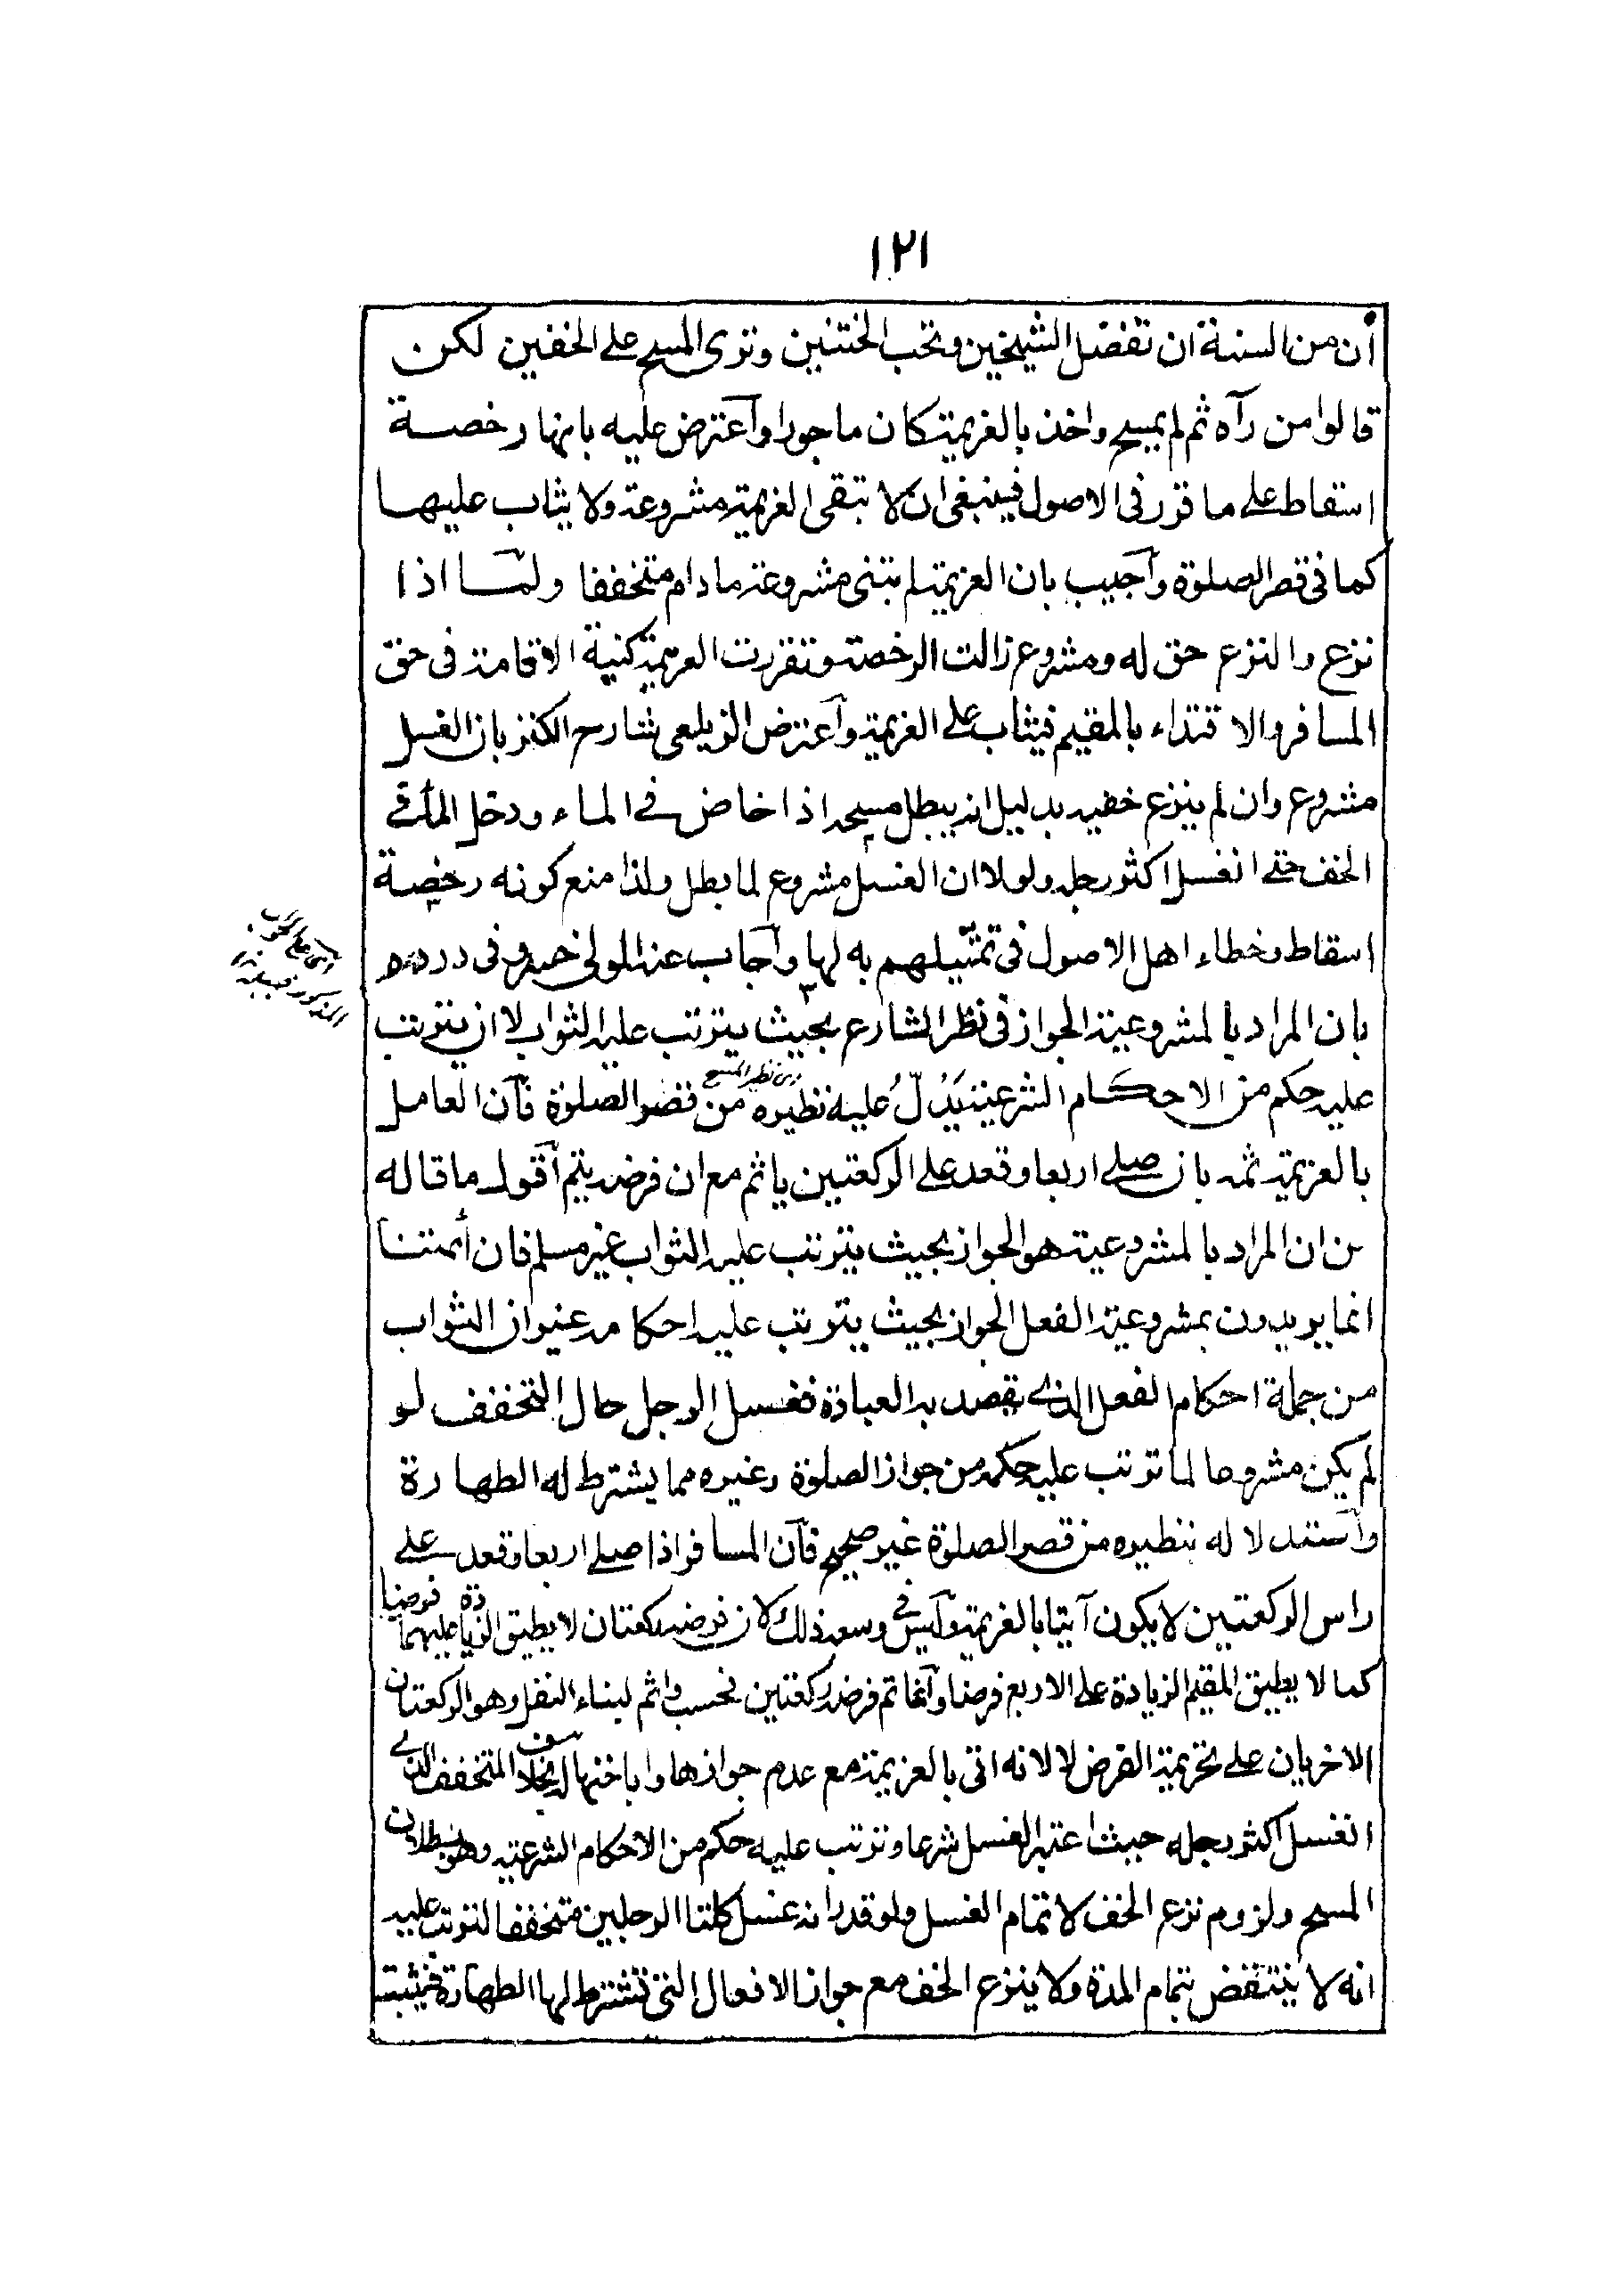 ١٢١
أن من السنة ان تفضل الشيخين وتحب الختنين وترى المسح على الخفين لكن
قالوا من رآه ثم لم يمسح واخذ بالعزيمة كان ماجورا وآعترض عليه بانها رخصة
اسقاط على ما قرر فى الاصول فينبغى ان لا تبقى العزيمة مشروعة ولا يثاب عليها
كما فى قصر الصلوة وآجيب بان العزيمة لم تبق مشروعة ما دام متخففا ولمّا اذا
نزع والنزع حق له ومشروع زالت الرخصة وتقررت العزيمة كنية الاقامة فى حق
المسافر والاقتداء بالمقيم فيثاب على العزيمة وآعترض الزيلعى شارح الكنز بان الغسل
مشروع وان لم ينزع خفيه بدليل انه يبطل مسحه اذا خاض فى الماء ودخل الماء فى
الخف حتى انغسل اكثر رجله ولولا ان الغسل مشروع لما بطل ولذا منع كونه رخصة
اسقاط وخطاء اهل الاصول فى تمثيلهم به لها وآجاب عنه المولى خسرو فى درره
بان المراد بالمشروعية الجواز فى نظر الشارع بحيث يترتب عليه الثواب لا ان يترتب
عليه حكم من الاحكام الشرعية يَدُلّ عليه نظيره من قصر الصلوة فآن العامل
بالعزيمة ثمه بان صلى اربعا وقعد على الركعتين ياثم مع ان فرضه يتم أقول ما قاله
من ان المراد بالمشروعية هو الجواز بحيث يترتب عليه الثواب غير مسلم فان أئمتنا
انما يريدون بمشروعية الفعل الجواز بحيث يترتب عليه احكامه غير ان الثواب
من جملة احكام الفعل الذى يقصد به العبادة فغسل الرجل حال التخفف لو
لم يكن مشروعا لما ترتب عليه حكمه من جواز الصلوة وغيره مما يشترط له الطهارة
وآستدلاله بنظيره من قصر الصلوة غير صحيح فآن المسافر اذا صلى اربعا وقعد على
راس الركعتين لا يكون آتيا بالعزيمة وآليس فى وسعه ذلك لان فرضه ركعتان لا يطيق الزيادة عليهما فرضا
كما لا يطيق المقيم الزيادة على الاربع فرضا وآنما تم فرضه ركعتين فحسب واثم لبناء النفل وهو الركعتان
الاخريان على تحريمة الفرض لا لانه اتى بالعزيمة مع عدم جوازها واباحتها له بخلاف المتخفف الذى
انغسل اكثر رجله حيث اعتبر الغسل شرعا وترتب عليه حكم من الاحكام الشرعية وهو بطلان
المسح ولزوم نزع الخف لاتمام الغسل ولو قدر انه غسل كلتا الرجلين متخففا لترتب عليه
انه لا ينتقض بتمام المدة ولا ينزع الخف مع جواز الافعال التى تشترط لها الطهارة فيثبت